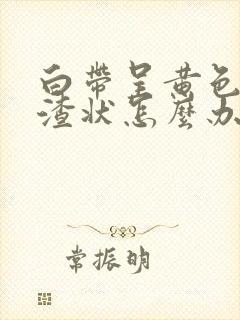 白帶呈黃色
渣状怎麼办
常振明